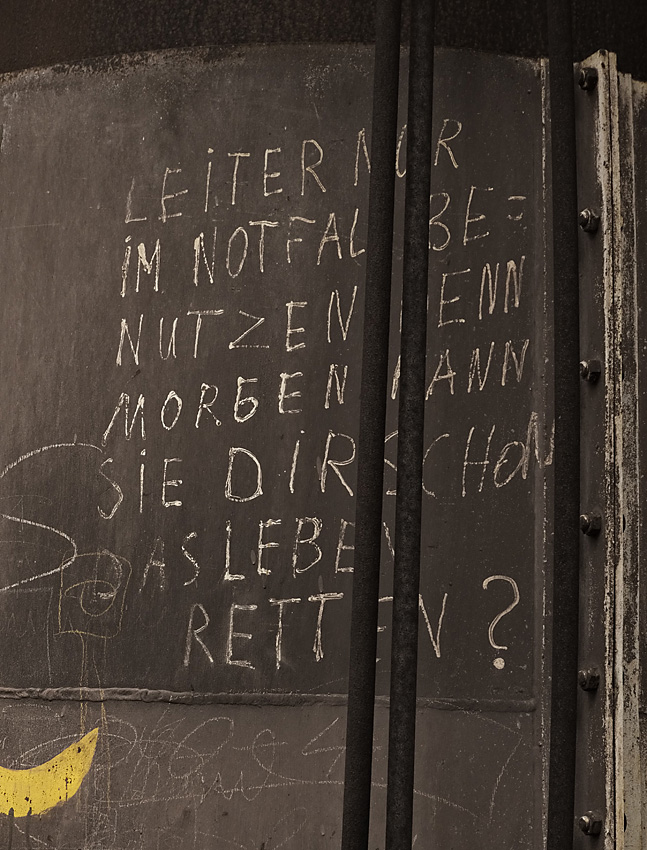 LEiTER NUR
iM NOTFALL BE=
NUTZEN DENN
MORGEN KANN
SiE DiR SCHON
DAS LEBEN
RETTEN ?